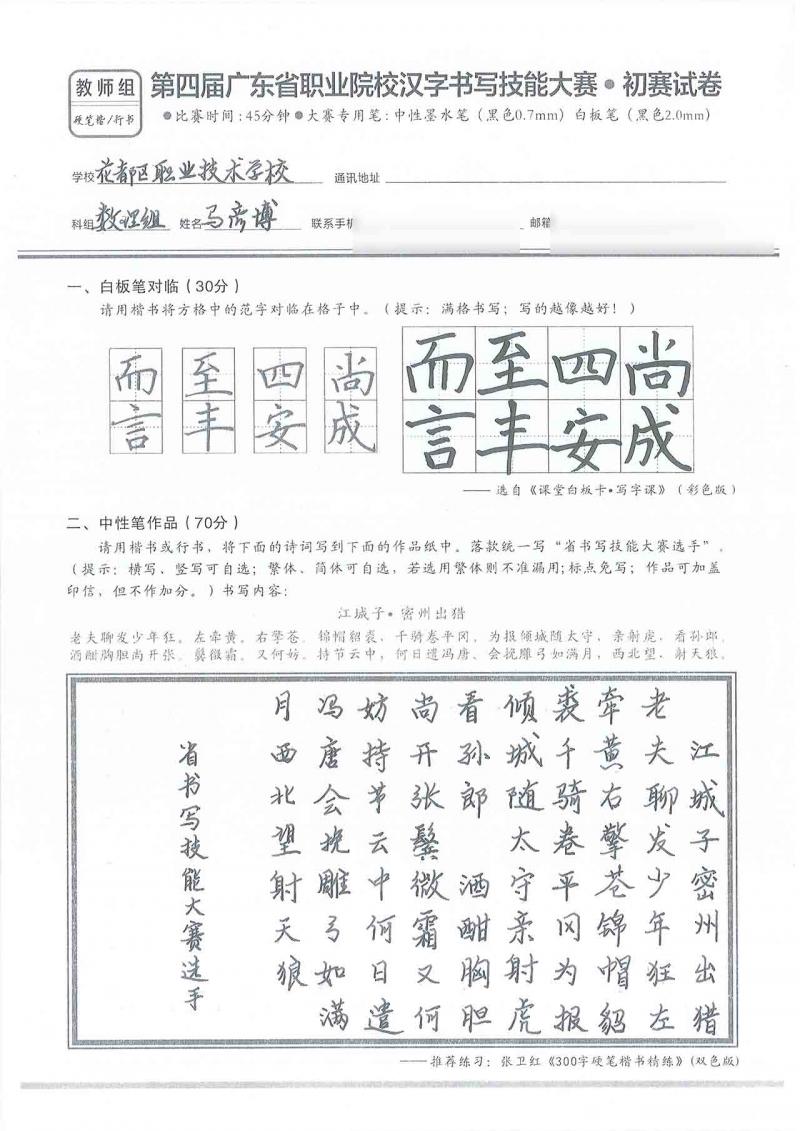 教师组
硬笔楷/行书
第四届广东省职业院校汉字书写技能大赛•初赛试卷
●比赛时间:45分钟●大赛专用笔:中性墨水笔(黑色0.7mm)白板笔(黑色2.0mm)
学校 花都区职业技术学校 通讯地址
科组 数理组 姓名 马彦博 联系手机 邮箱
一、白板笔对临(30分)
请用楷书将方格中的范字对临在格子中。(提示:满格书写;写的越像越好!)
而至四尚 而至四尚
言丰安成 言丰安成
——选自《课堂白板卡•写字课》(彩色版)
二、中性笔作品(70分)
请用楷书或行书,将下面的诗词写到下面的作品纸中。落款统一写“省书写技能大赛选手”。
(提示:横写、竖写可自选;繁体、简体可自选,若选用繁体则不准漏用;标点免写;作品可加盖
印信,但不作加分。)书写内容:
江城子•密州出猎
老夫聊发少年狂。左牵黄。右擎苍。锦帽貂裘,千骑卷平冈。为报倾城随太守,亲射虎,看孙郎。
酒酣胸胆尚开张。鬓微霜。又何妨。持节云中,何日遣冯唐。会挽雕弓如满月,西北望,射天狼。
江城子密州出猎
老夫聊发少年狂左
牵黄右擎苍锦帽貂
裘千骑卷平冈为报
倾城随太守亲射虎
看孙郎 酒酣胸胆
尚开张鬓微霜又何
妨持节云中何日遣
冯唐会挽雕弓如满
月西北望射天狼
省书写技能大赛选手
——推荐练习:张卫红《300字硬笔楷书精练》(双色版)